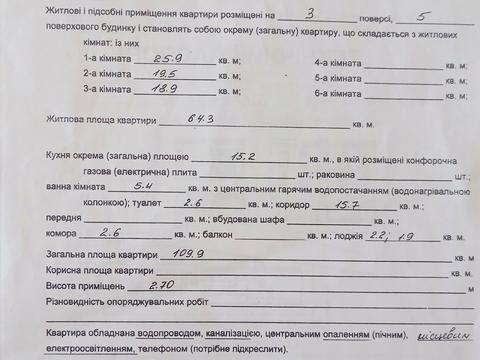 Житлові і підсобні приміщення квартири розміщені на 3 поверсі, 5
поверхового будинку і становлять собою окрему (загальну) квартиру, що складається з житлових
кімнат: із них
1-а кімната 25.9 кв. м; 4-а кімната кв. м;
2-а кімната 19.5 кв. м; 5-а кімната кв. м;
3-а кімната 18.9 кв. м; 6-а кімната кв. м;
Житлова площа квартири 64.3 кв. м.
Кухня окрема (загальна) площею 15.2 кв. м., в якій розміщені конфорочна
газова (електрична) плита шт.; раковина шт.;
ванна кімната 5.4 кв. м. з центральним гарячим водопостачанням (водонагрівальною
колонкою); туалет 2.6 кв. м.; коридор 15.7 кв. м.;
передня кв. м.; вбудована шафа кв. м.;
комора 2.6 кв. м.; балкон кв. м.; лоджія 2.2; 1.9 кв. м.
Загальна площа квартири 109.9 кв. м
Корисна площа квартири кв. м
Висота приміщень 2.70 м
Різновидність опоряджувальних робіт
Квартира обладнана водопроводом, каналізацією, центральним опаленням (пічним), місцевим
електроосвітленням, телефоном (потрібне підкреслити).